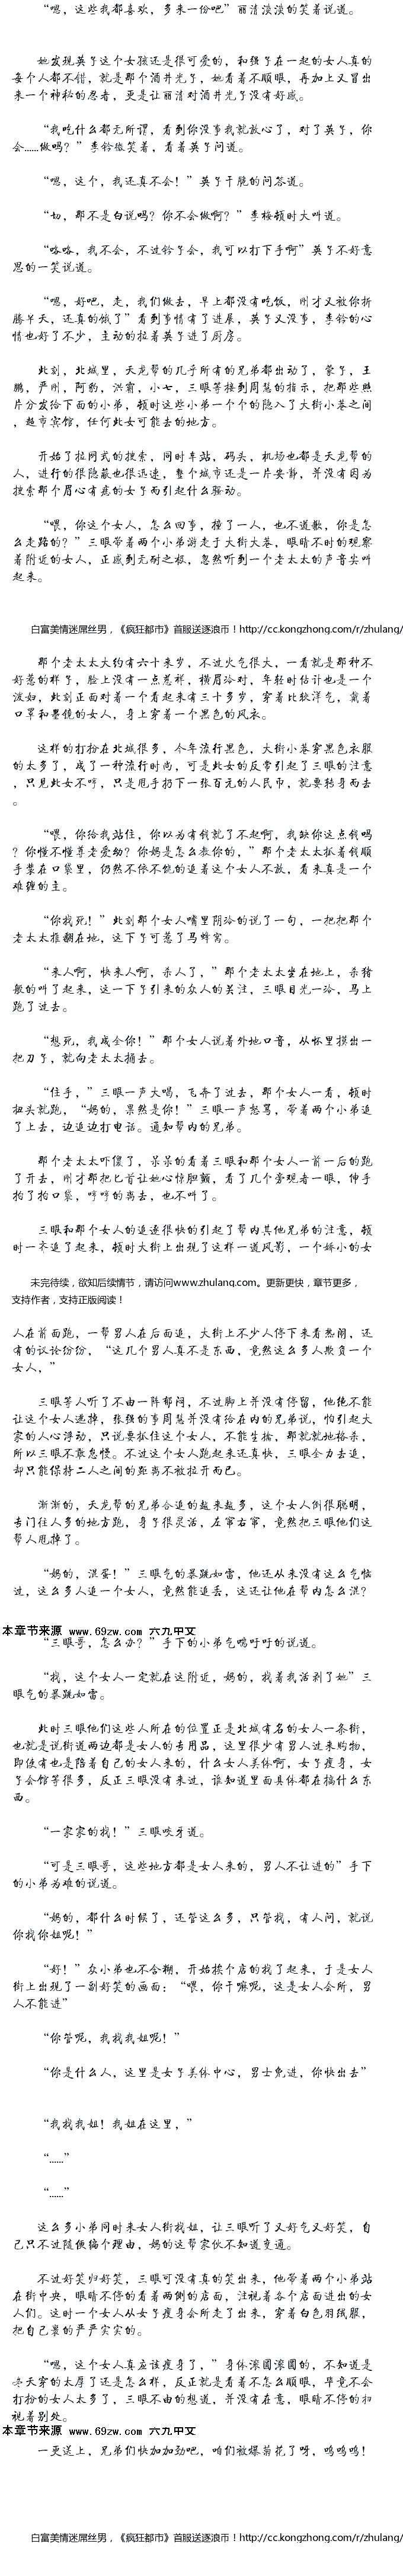 “嗯，这些我都喜欢，多来一份吧”丽清淡淡的笑着说道。
她发现英子这个女孩还是很可爱的，和强子在一起的女人真的
每个人都不错，就是那个酒井光子，她看着不顺眼，再加上又冒出
来一个神秘的忍者，更是让丽清对酒井光子没有好感。
“我吃什么都无所谓，看到你没事我就放心了，对了英子，你
会……做吗？”李铃微笑着，看着英子问道。
“嗯，这个，我还真不会！”英子干脆的回答道。
“切，那不是白说吗？你不会做啊？”李梅顿时大叫道。
“咯咯，我不会，不过铃子会，我可以打下手啊”英子不好意
思的一笑说道。
“嗯，好吧，走，我们做去，早上都没有吃饭，刚才又被你折
腾半天，还真的饿了”看到事情有了进展，英子又没事，李铃的心
情也好了不少，主动的拉着英子进了厨房。
此刻，北城里，天龙帮的几乎所有的兄弟都出动了，蒙子，王
鹏，严刚，阿豹，洪霸，小七，三眼等接到周慧的指示，把那些照
片分发给下面的小弟，顿时这些小弟一个个的隐入了大街小巷之间
，超市宾馆，任何此女可能去的地方。
开始了拉网式的搜索，同时车站，码头，机场也都是天龙帮的
人，进行的很隐蔽也很迅速，整个城市还是一片安静，并没有因为
搜索那个眉心有痣的女子而引起什么骚动。
“喂，你这个女人，怎么回事，撞了一人，也不道歉，你是怎
么走路的？”三眼带着两个小弟游走于大街大巷，眼睛不时的观察
着附近的女人，正感到无耐之极，忽然听到一个老太太的声音尖叫
起来。
白富美情迷屌丝男，《疯狂都市》首服送逐浪币！http://cc.kongzhong.com/r/zhulang/
那个老太太大约有六十来岁，不过火气很大，一看就是那种不
好惹的样子，脸上没有一点慈祥，横眉冷对，年轻时估计也是一个
泼妇，此刻正面对着一个看起来有三十多岁，穿着比较洋气，戴着
口罩和墨镜的女人，身上穿着一个黑色的风衣。
这样的打扮在北城很多，今年流行黑色，大街小巷穿黑色衣服
的太多了，成了一种流行时尚，可是此女的反常引起了三眼的注意
，只见此女不吭，只是甩手扔下一张百元的人民币，就要转身而去
。
“喂，你给我站住，你以为有钱就了不起啊，我缺你这点钱吗
？你懂不懂尊老爱幼？你妈是怎么教你的，”那个老太太抓着钱顺
手装在口袋里，仍然不依不饶的追着这个女人不放，看来真是一个
难缠的主。
“你找死！”此刻那个女人嘴里阴冷的说了一句，一把把那个
老太太推翻在地，这下子可惹了马蜂窝。
“来人啊，快来人啊，杀人了，”那个老太太坐在地上，杀猪
般的叫了起来，这一下子引来的众人的关注，三眼目光一冷，马上
跑了过去。
“想死，我成全你！”那个女人说着外地口音，从怀里摸出一
把刀子，就向老太太捅去。
“住手，”三眼一声大喝，飞奔了过去，那个女人一看，顿时
扭头就跑，“妈的，果然是你！”三眼一声怒骂，带着两个小弟追
了上去，边追边打电话。通知帮内的兄弟。
那个老太太吓傻了，呆呆的看着三眼和那个女人一前一后的跑
了开去，刚才那把匕首让她心惊胆颤，看了几个旁观者一眼，伸手
拍了拍口袋，哼哼的离去，也不叫了。
三眼和那个女人的追逐很快的引起了帮内其他兄弟的注意，顿
时一齐追了起来，顿时大街上出现了这样一道风影，一个娇小的女
未完待续，欲知后续情节，请访问www.zhulang.com。更新更快，章节更多，
支持作者，支持正版阅读！
人在前面跑，一帮男人在后面追，大街上不少人停下来看热闹，还
有的议论纷纷，“这几个男人真不是东西，竟然这么多人欺负一个
女人，”
三眼等人听了不由一阵郁闷，不过脚上并没有停留，他绝不能
让这个女人逃掉，张强的事周慧并没有给在内的兄弟说，怕引起大
家的人心浮动，只说要抓住这个女人，不能生擒，那就就地格杀，
所以三眼不敢怠慢。不过这个女人跑起来还真快，三眼全力去追，
却只能保持二人之间的距离不被拉开而已。
渐渐的，天龙帮的兄弟合追的越来越多，这个女人倒很聪明，
专门往人多的地方跑，身子很灵活，左窜右窜，竟然把三眼他们这
帮人甩掉了。
“妈的，混蛋！”三眼气的暴跳如雷，他还从来没有这么气恼
过，这么多人追一个女人，竟然能追丢，这还让他在帮内怎么混？
本章节来源 www.69zw.com 六九中文
“三眼哥，怎么办？”手下的小弟气喘吁吁的说道。
“找，这个女人一定就在这附近，妈的，找着我活剥了她”三
眼气的暴跳如雷。
此时三眼他们这些人所在的位置正是北城有名的女人一条街，
也就是说街道两边都是女人的专用品，这里很少有男人过来购物，
即使有也是陪着自己的女人来的，什么女人美体啊，女子瘦身，女
子会馆等很多，反正三眼没有来过，谁知道里面具体都在搞什么东
西。
“一家家的找！”三眼咬牙道。
“可是三眼哥，这些地方都是女人来的，男人不让进的”手下
的小弟为难的说道。
“妈的，都什么时候了，还管这么多，只管找，有人问，就说
你找你姐呢！”
“好！”众小弟也不含糊，开始挨个店的找了起来，于是女人
街上出现了一副好笑的画面：“喂，你干嘛呢，这是女人会所，男
人不能进”
“你管呢，我找我姐呢！”
“你是什么人，这里是女子美体中心，男士免进，你快出去”
“我找我姐！我姐在这里，”
“……”
“……”
这么多小弟同时来女人街找姐，让三眼听了又好气又好笑，自
己只不过随便编个理由，妈的这帮家伙不知道变通。
不过好笑归好笑，三眼可没有真的笑出来，他带着两个小弟站
在街中央，眼睛不停的看着两侧的店面，注视着各个店面进出的女
人们。这时一个女人从女子瘦身会所走了出来，穿着白色羽绒服，
把自己裹的严严实实的。
“嗯，这个女人真应该瘦身了，”身体滚圆滚圆的，不知道是
冬天穿的太厚了还是怎么样，反正就是看着不怎么顺眼，毕竟不会
打扮的女人太多了，三眼不由的想道，并没有在意，眼睛不停的扫
视着别处。
本章节来源 www.69zw.com 六九中文
一更送上，兄弟们快加加劲吧，咱们被爆菊花了呀，呜呜呜！
白富美情迷屌丝男，《疯狂都市》首服送逐浪币！http://cc.kongzhong.com/r/zhulang/